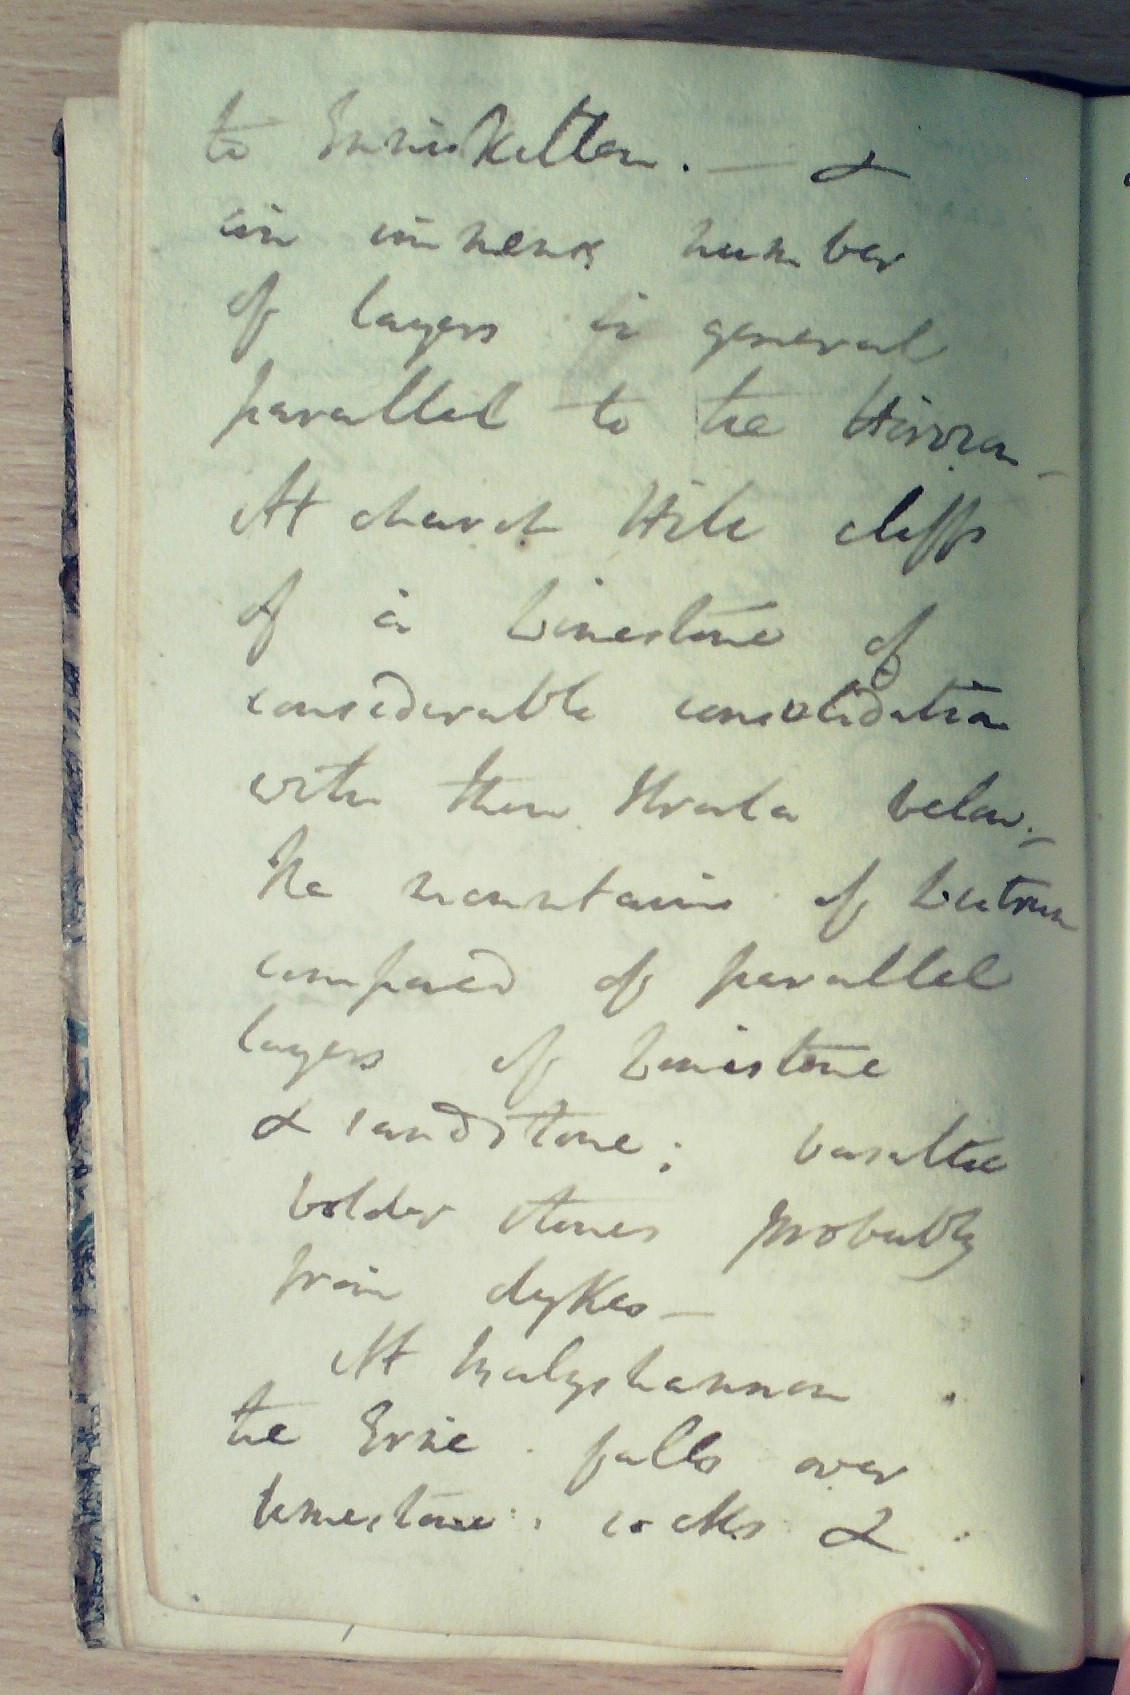 to Enniskillen. — &
in immense number
of layers in general
parallel to the Horizon -
At church Hill cliffs
of a Limestone of
considerable consolidation
with thin strata below. -
The mountains of Leitrim
composed of parallel
layers of Limestone
& sandstone; basaltic
bolder stones probably
from dykes —
At Balyshannon
the Erne falls over
limestone rocks &